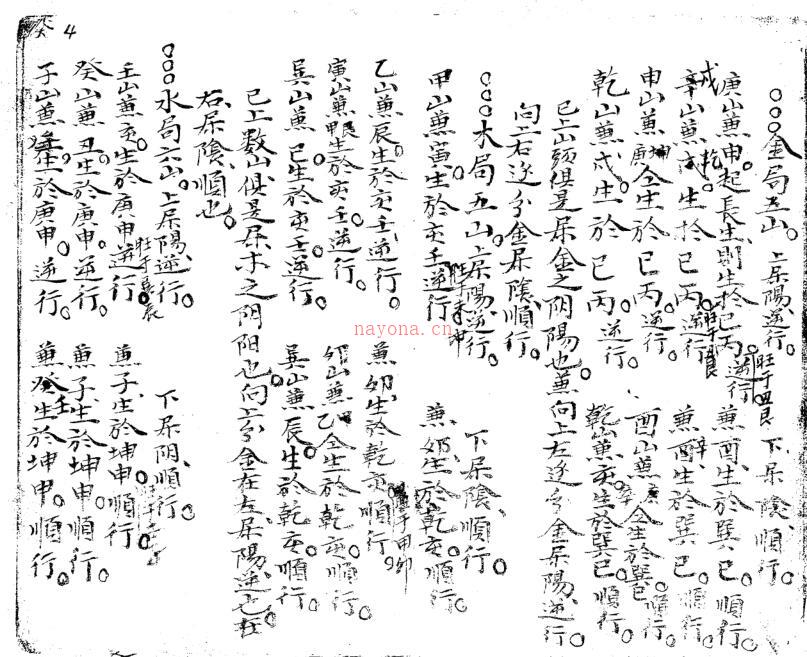 4
○○○金局五山。上屎陽逆行。 下屎陰順行。
庚山兼申起長生則生於巳丙逆行 兼酉生於巽巳順行。
旺于艮
辛山兼戌生於巳丙逆行 兼酉生於巽巳順行。
戌乾
申山兼庚坤仝生於巳丙逆行。 酉山兼庚辛仝生於巽巳順行。
乾山兼戌生於巳丙逆行。 乾山兼亥生於巽巳順行。
已上山頭俱是屎金之阴陽也。兼向上左逆分金屎陽逆行。
向上右逆分金屎陰順行。
○○○木局五山上屎陽逆行。 下屎陰順行。
甲山兼寅生於亥壬逆行 兼卯生於乾亥順行。
乙山兼辰生於亥壬逆行。 兼卯生於乾亥順行。
寅山兼甲艮生於亥壬逆行。 卯山兼甲乙仝生於乾亥順行。
巽山兼巳生於亥壬逆行。 巽山兼辰生於乾亥順行。
已上數山俱是屎木之阴阳也。向上分金在左屎陽逆也在
右屎陰順也。
○○○水局六山。上屎陽逆行。 下屎阴順行。
壬山兼亥生於庚申逆行 兼子生於坤申順行。
癸山兼丑生於庚申逆行。 兼子生於坤申順行。
子山兼壬生於庚申逆行。 兼癸生於坤申順行。
nayona.cn